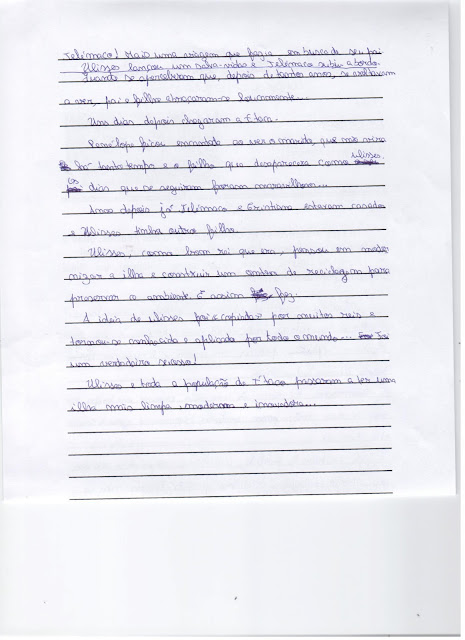 Telémaco! Mais uma viagem que fazia em busca de seu pai
Ulisses lançou um salva-vidas e Telémaco subiu a bordo.
Quando se aperceberam que, depois de tantos anos, se voltavam
a ver, pai e filho abraçaram-se loucamente...
Uns dias depois chegaram a Ítaca.
Penélope ficou encantada ao ver o marido, que não vira
há tanto tempo e o filho que desaparecera como Ulisses.
Os dias que se seguiram foram maravilhosos...
Anos depois já Telémaco e Cristiana estavam casados
e Ulisses tinha outro filho.
Ulisses, como bom rei que era, pensou em moder
nizar a ilha e construir um centro de reciclagem para
preservar o ambiente. E assim fez.
A ideia de Ulisses foi copiada por muitos reis e
tornou-se conhecida e aplicada por todo o mundo... Foi
um verdadeiro sucesso!
Ulisses e toda a população de Ítaca passaram a ter uma
ilha mais limpa, moderna e inovadora...